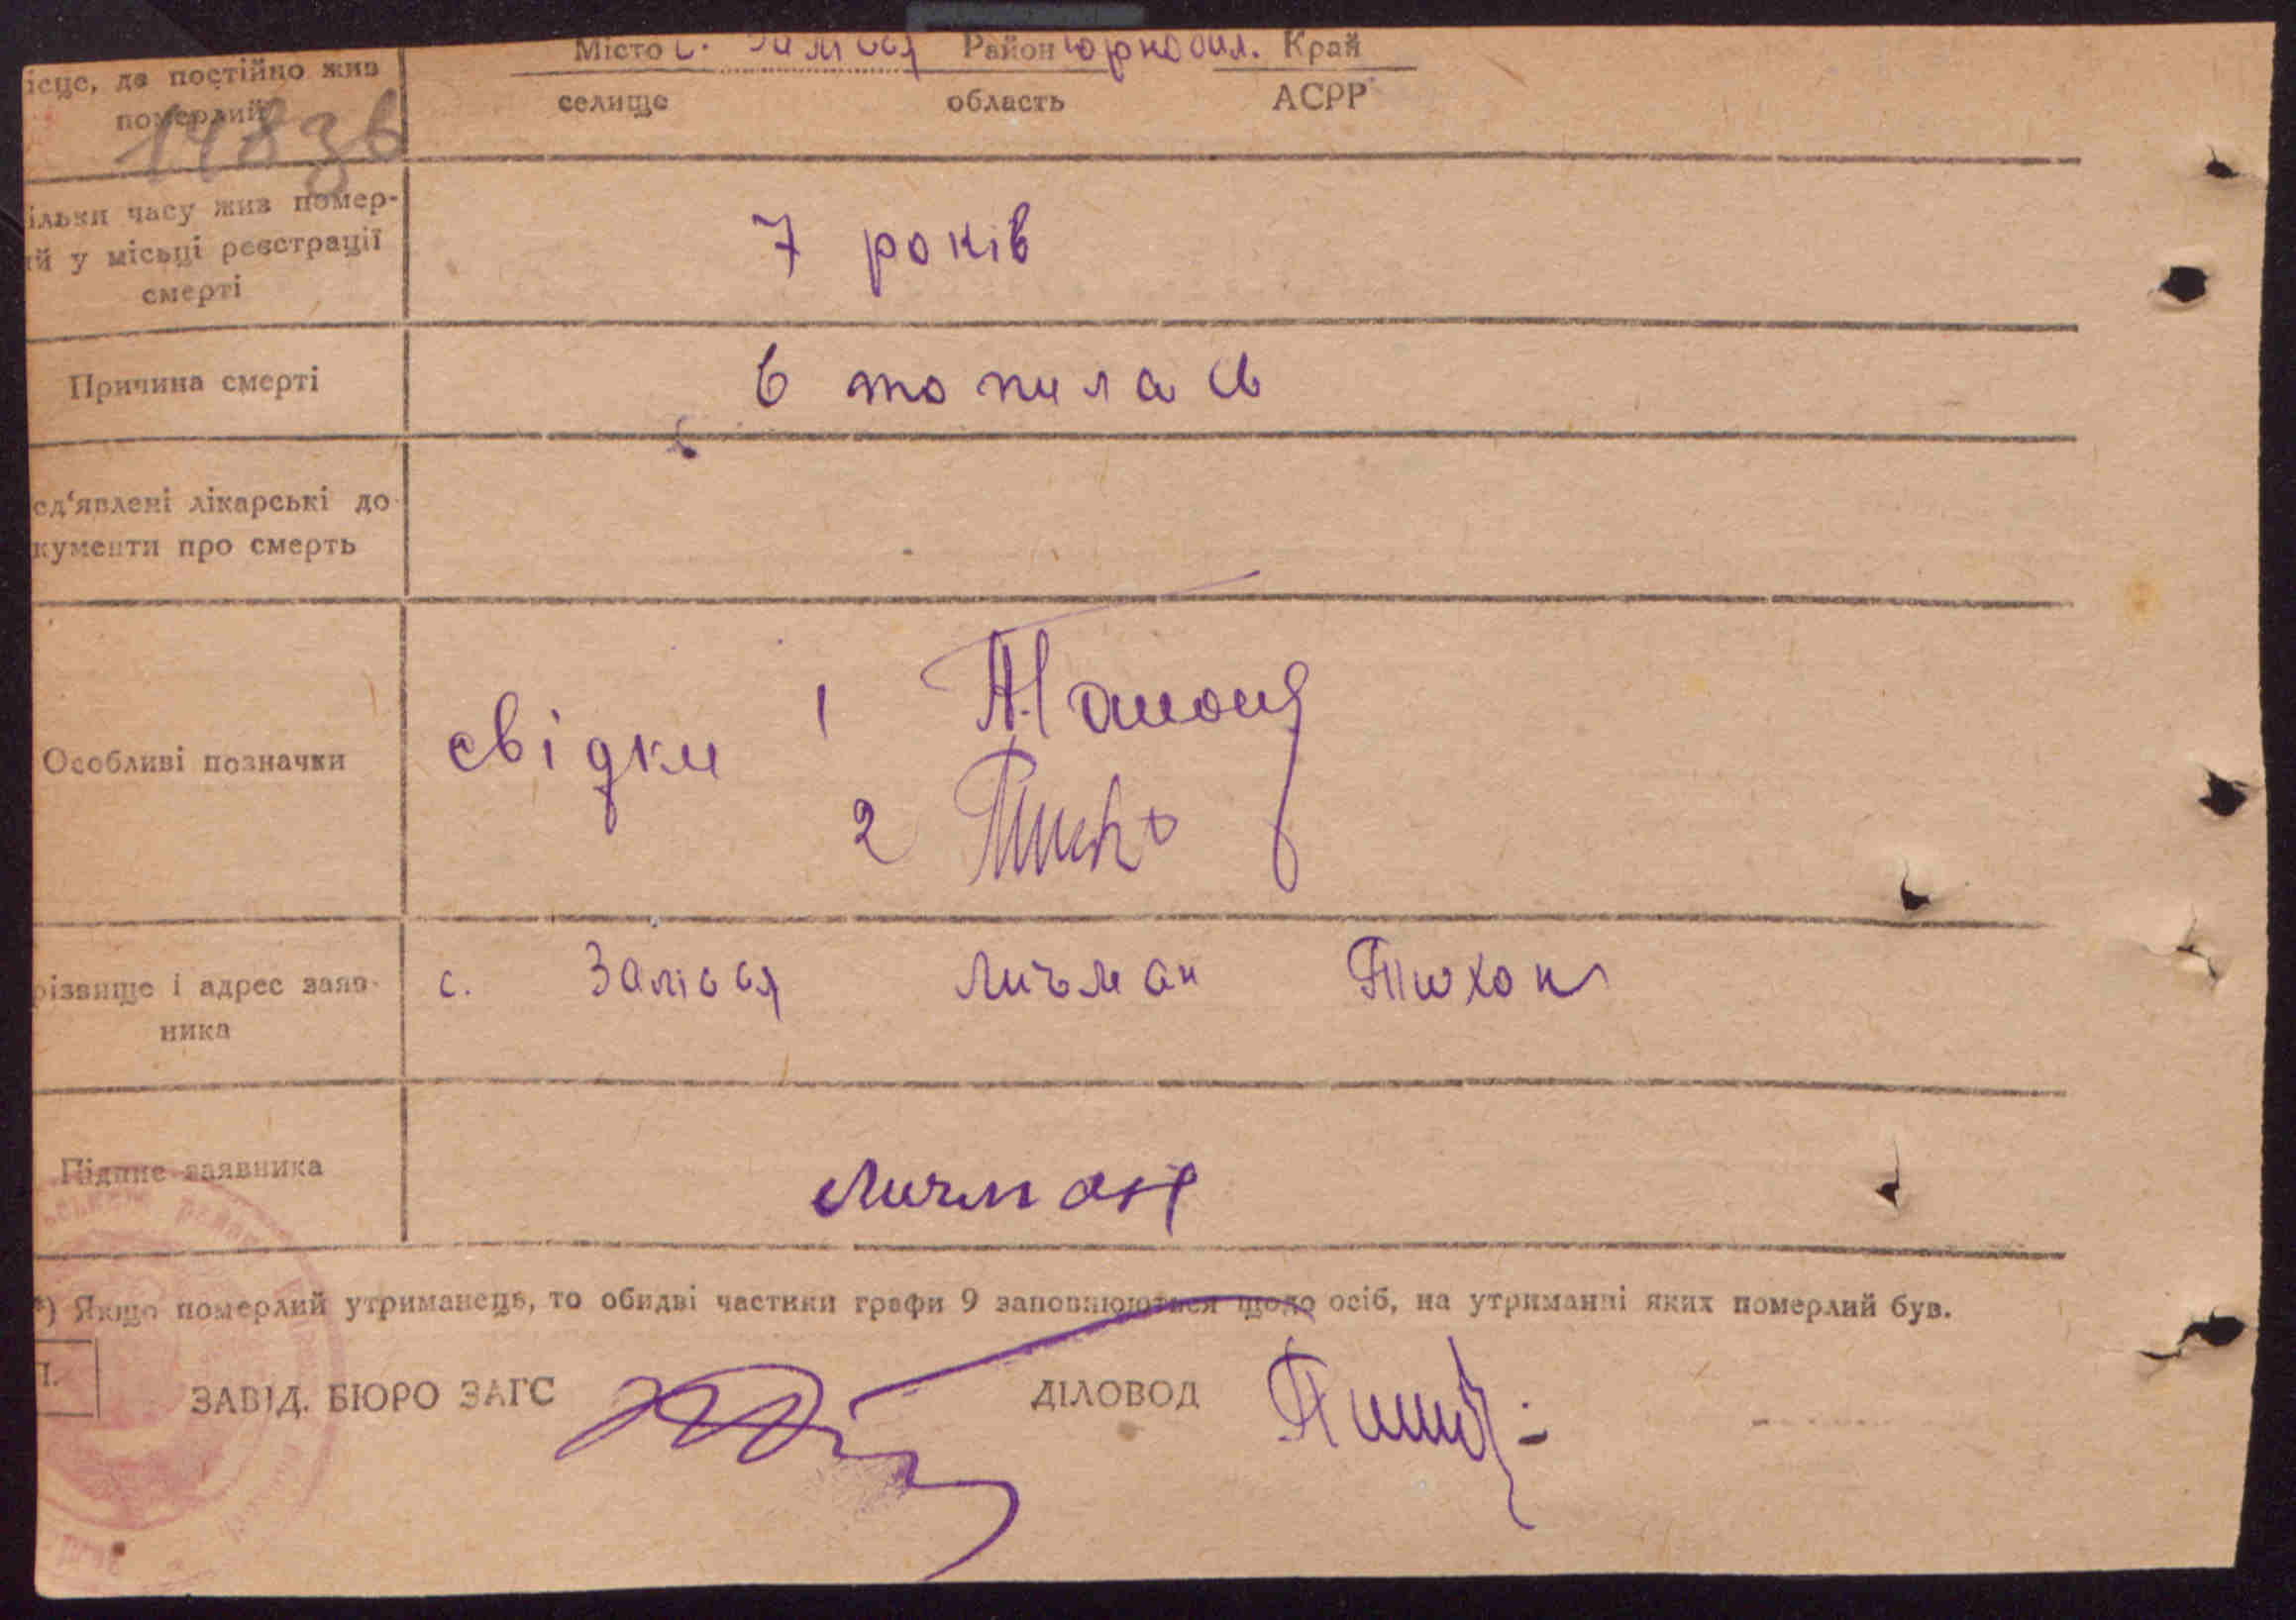 Місто с. Район Чорнобил. Край
ісце, де постійно жив
померлий
селище область АСРР
148зв
7 років
ільки часу жив помер-
ий у місьці реєстрації
смерті
Причина смерті
втопилась
ед‘явлені лікарські до-
кументи про смерть
Особливі позначки
свідки 1
2
різвище і адрес заяв-
ника
с. Залісся Личман Тихон
Підпис заявника
Личман
*) Якщо померлий утриманець, то обидві частини графи 9 заповнюються щодо осіб, на утриманні яких померлий був.
П.
ЗАВІД. БЮРО ЗАГС ДІЛОВОД